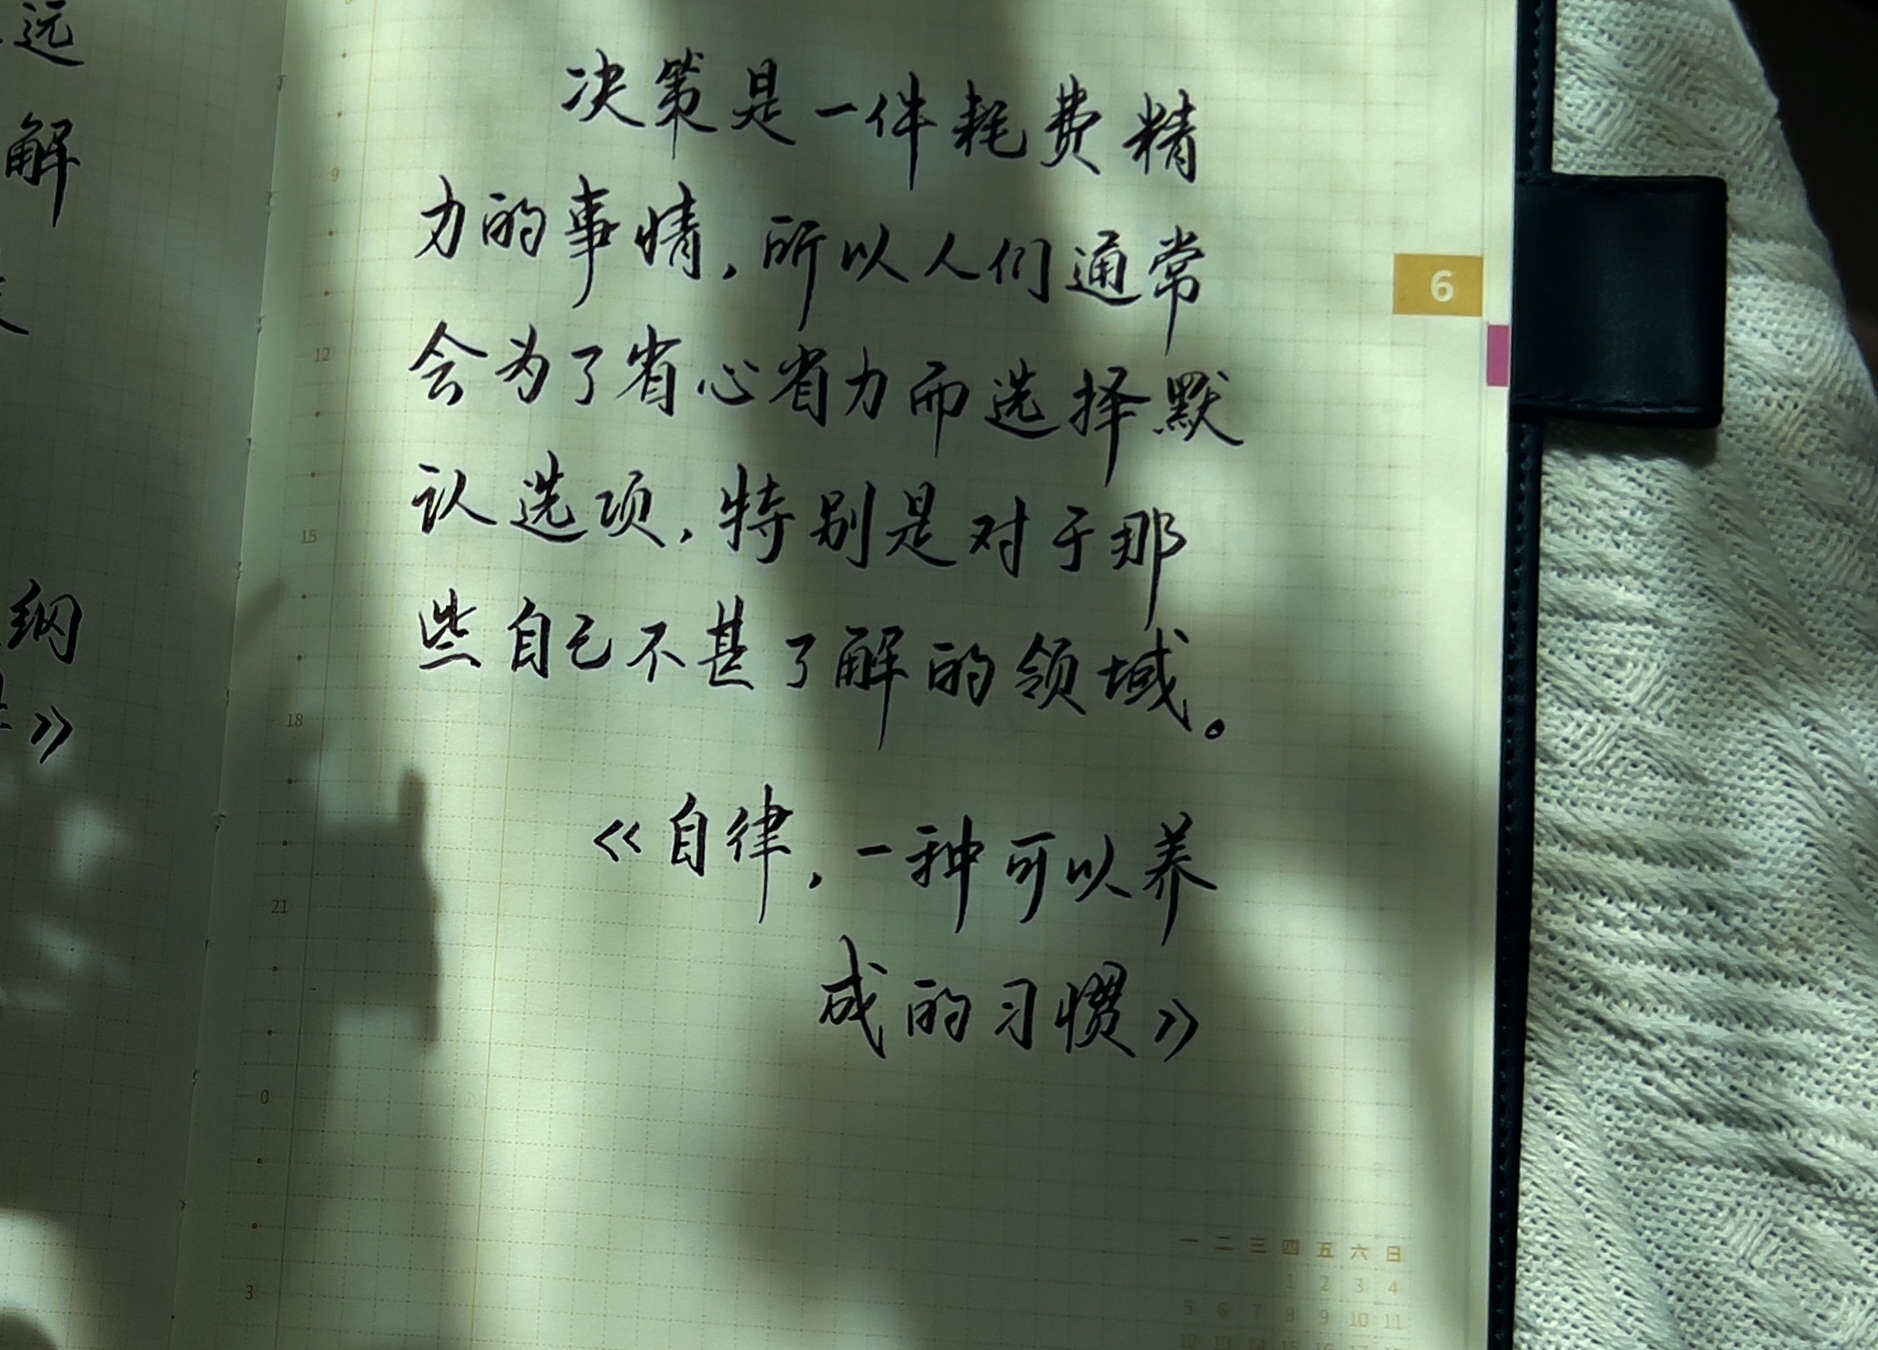 远
解
纲
》
决策是一件耗费精
力的事情，所以人们通常
会为了省心省力而选择默
认选项，特别是对于那
些自己不甚了解的领域。
《自律，一种可以养
成的习惯》
6
9
12
15
18
21
0
3
一 二 三 四 五 六 日
1 2 3 4
5 6 7 8 9 10 11